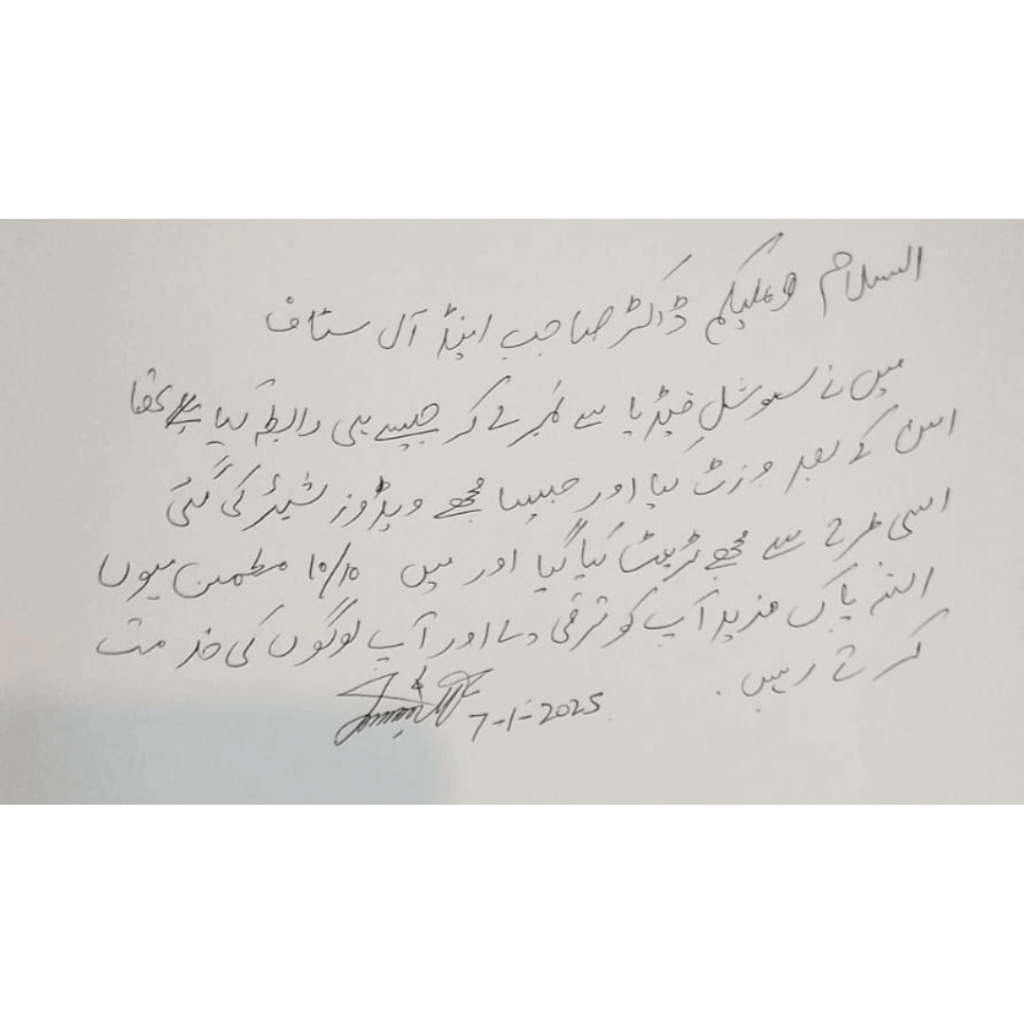 السلام وعلیکم ڈاکٹر صاحب اینڈ آل سٹاف
میں نے سوشل میڈیا سے نمبر لے کر جیسے ہی رابطہ کیا تھا
اس کے بعد وزٹ کیا اور جیسا مجھے ویڈوز شیئر کی گئی
اسی طرح سے مجھے ٹریٹ کیا گیا اور میں 10/10 مطمین ہوں
اللہ پاک مزید آپ کو ترقی دے اور آپ لوگوں کی خدمت
کرتے رہیں.
7-1-2025